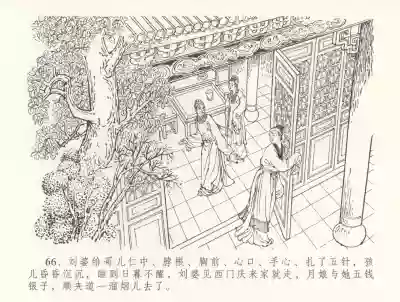 66. 刘婆给哥儿仁中、脖根、胸前、心口、手心，扎了五针，孩
儿昏昏沉沉，睡到日暮不醒，刘婆见西门庆来家就走，月娘与她五钱
银子，顺夹道一溜烟儿去了。